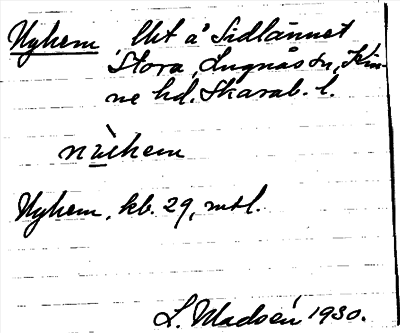 Nyhem, lht å Sidlännet
Stora, Lugnås sn, Kin-
ne hd. Skarab. l.
nỳhem
Nyhem, kb. 29, mtl.
L. Madsén 1930.